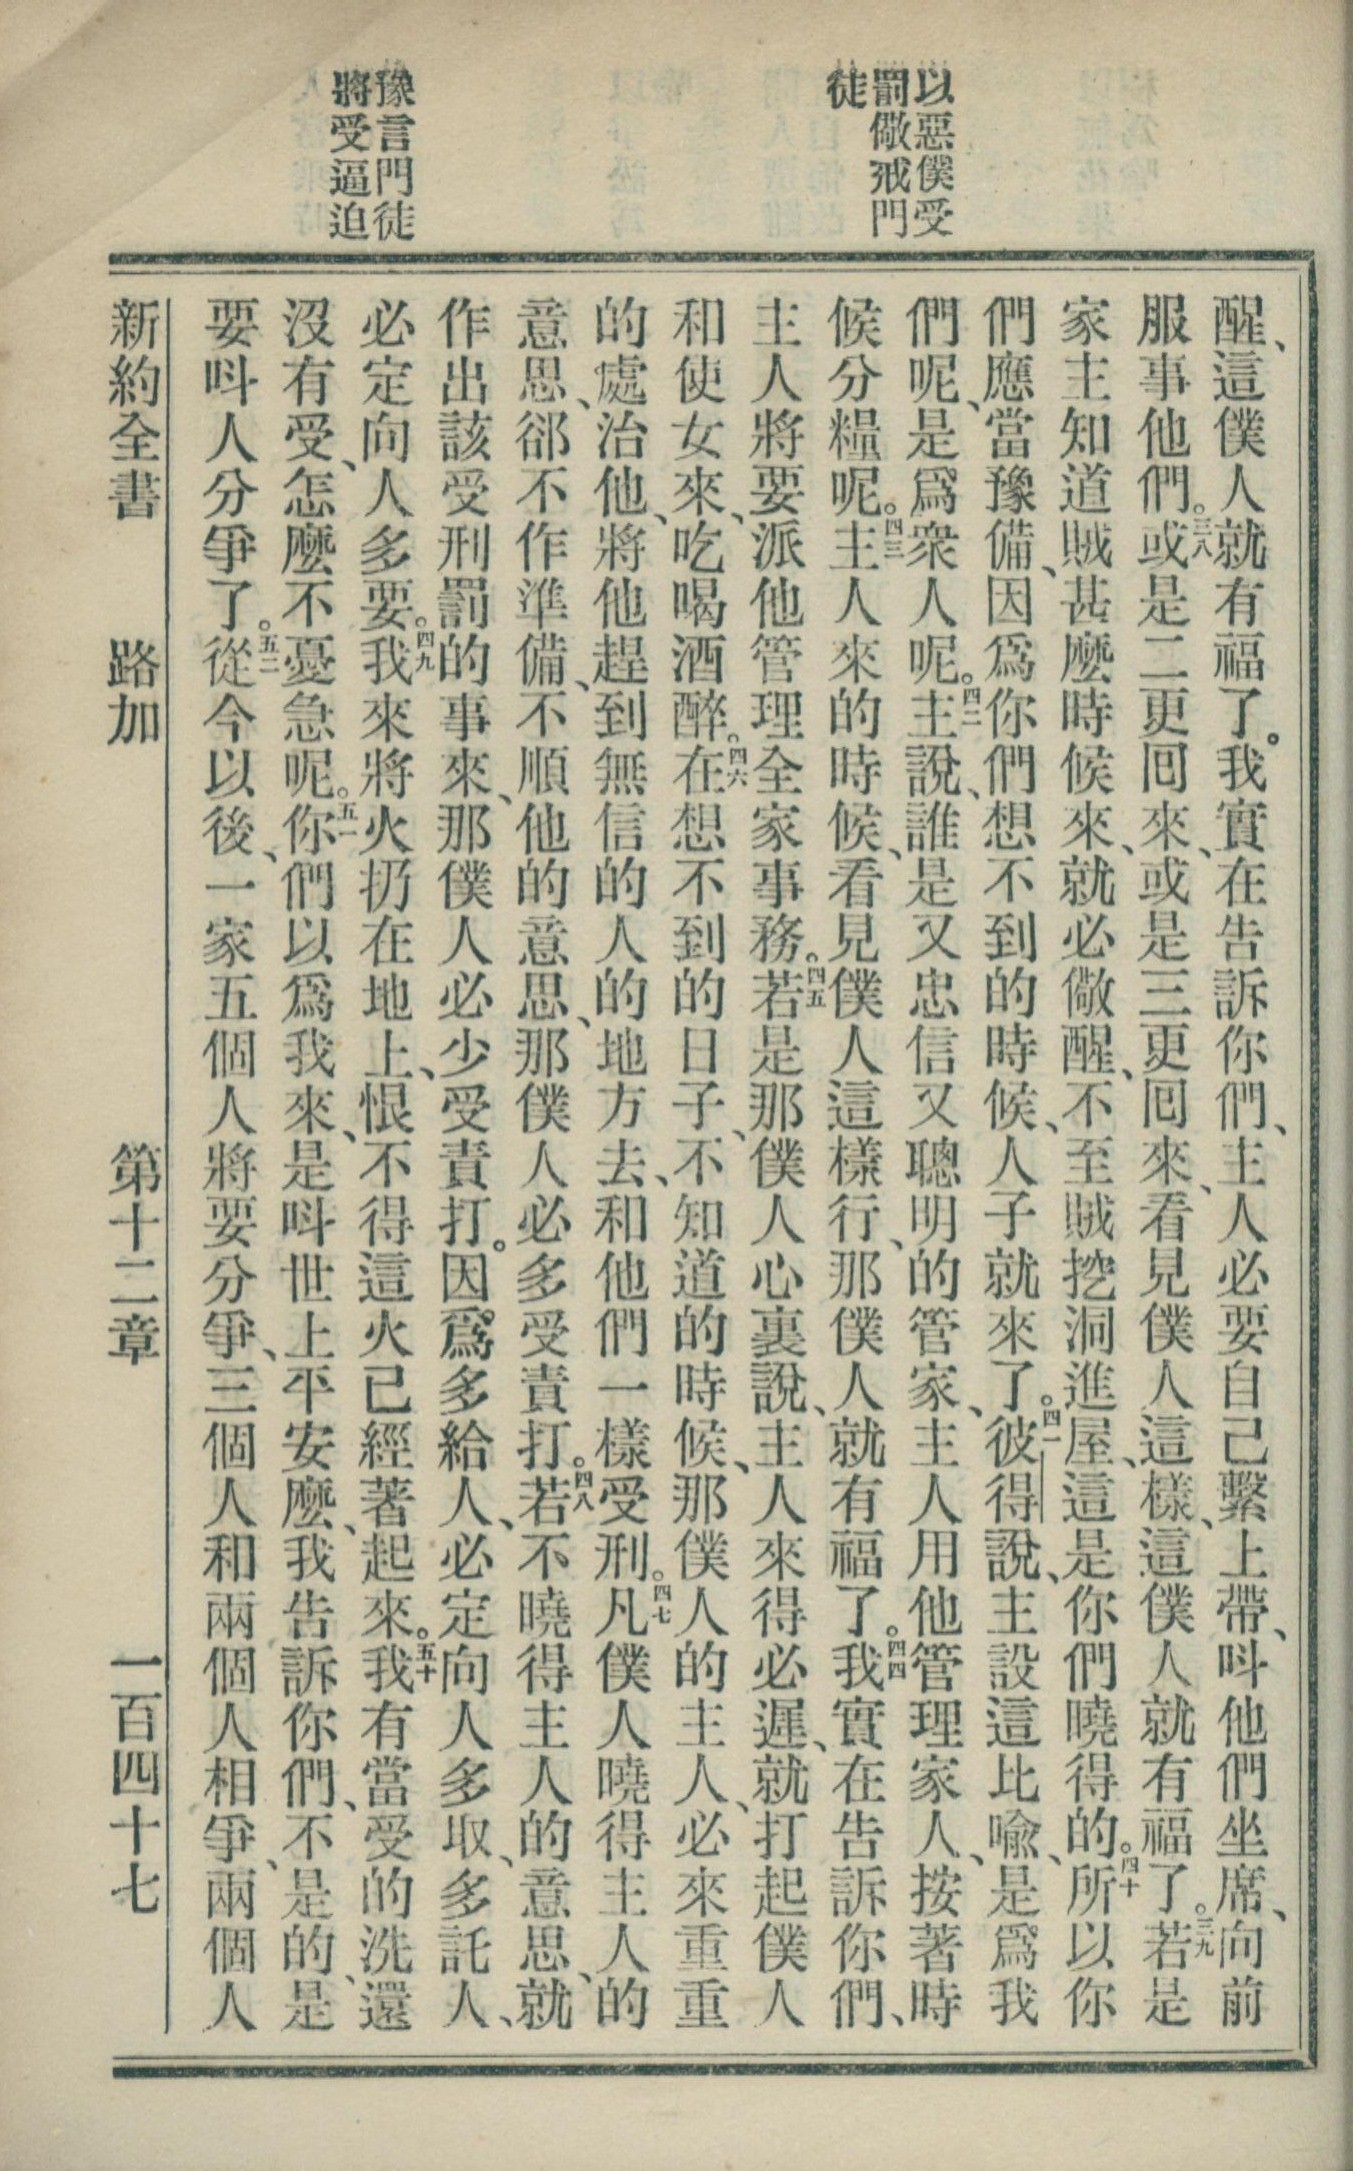 以惡僕受
罰儆戒門
徒
豫言門徒
將受逼迫
醒、這僕人就有福了。我實在告訴你們、主人必要自己繫上帶、呌他們坐席、向前
服事他們。三八或是二更囘來、或是三更囘來、看見僕人這樣、這僕人就有福了。三九若是
家主知道賊甚麽時候來、就必儆醒、不至賊挖洞進屋、這是你們曉得的。四十所以你
們應當豫備、因爲你們想不到的時候、人子就來了。四一彼得說、主設這比喩、是爲我
們呢、是爲衆人呢。四二主說、誰是又忠信又聰明的管家、主人用他管理家人、按著時
候分糧呢。四三主人來的時候、看見僕人這樣行、那僕人就有福了。四四我實在告訴你們、
主人將要派他管理全家事務。四五若是那僕人心裏說、主人來得必遲、就打起僕人
和使女來、吃喝酒醉。四六在想不到的日子、不知道的時候、那僕人的主人、必來重重
的處治他、將他趕到無信的人的地方去、和他們一樣受刑。四七凡僕人曉得主人的
意思、郤不作準備、不順他的意思、那僕人必多受責打。四八若不曉得主人的意思、就
作出該受刑罰的事來、那僕人必少受責打。因爲多給人、必定向人多取、多託人、
必定向人多要。四九我來將火扔在地上、恨不得這火已經著起來。五十我有當受的洗還
沒有受、怎麽不憂急呢。五一你們以爲我來、是呌世上平安麽、我告訴你們、不是的、是
要呌人分爭了。五二從今以後、一家五個人將要分爭、三個人和兩個人相爭、兩個人
新約全書 路加 第十二章 一百四十七